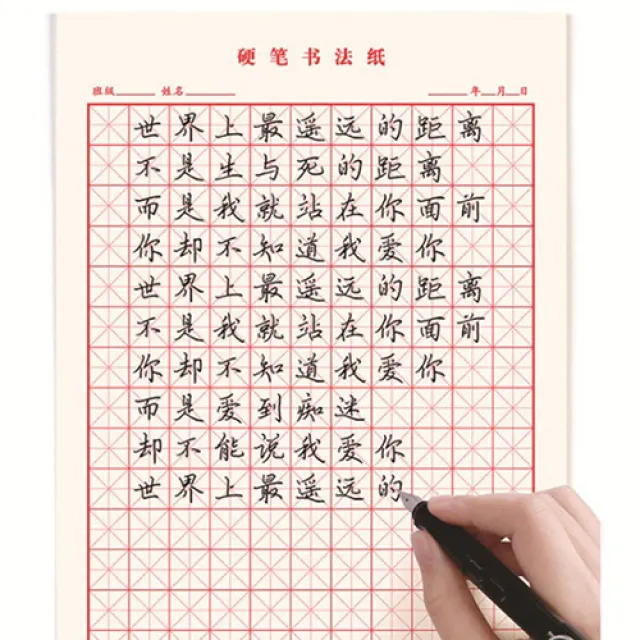 硬笔书法纸
班级 姓名 年 月 日
世界上最遥远的距离
不是生与死的距离
而是我就站在你面前
你却不知道我爱你
世界上最遥远的距离
不是我就站在你面前
你却不知道我爱你
而是爱到痴迷
却不能说我爱你
世界上最遥远的